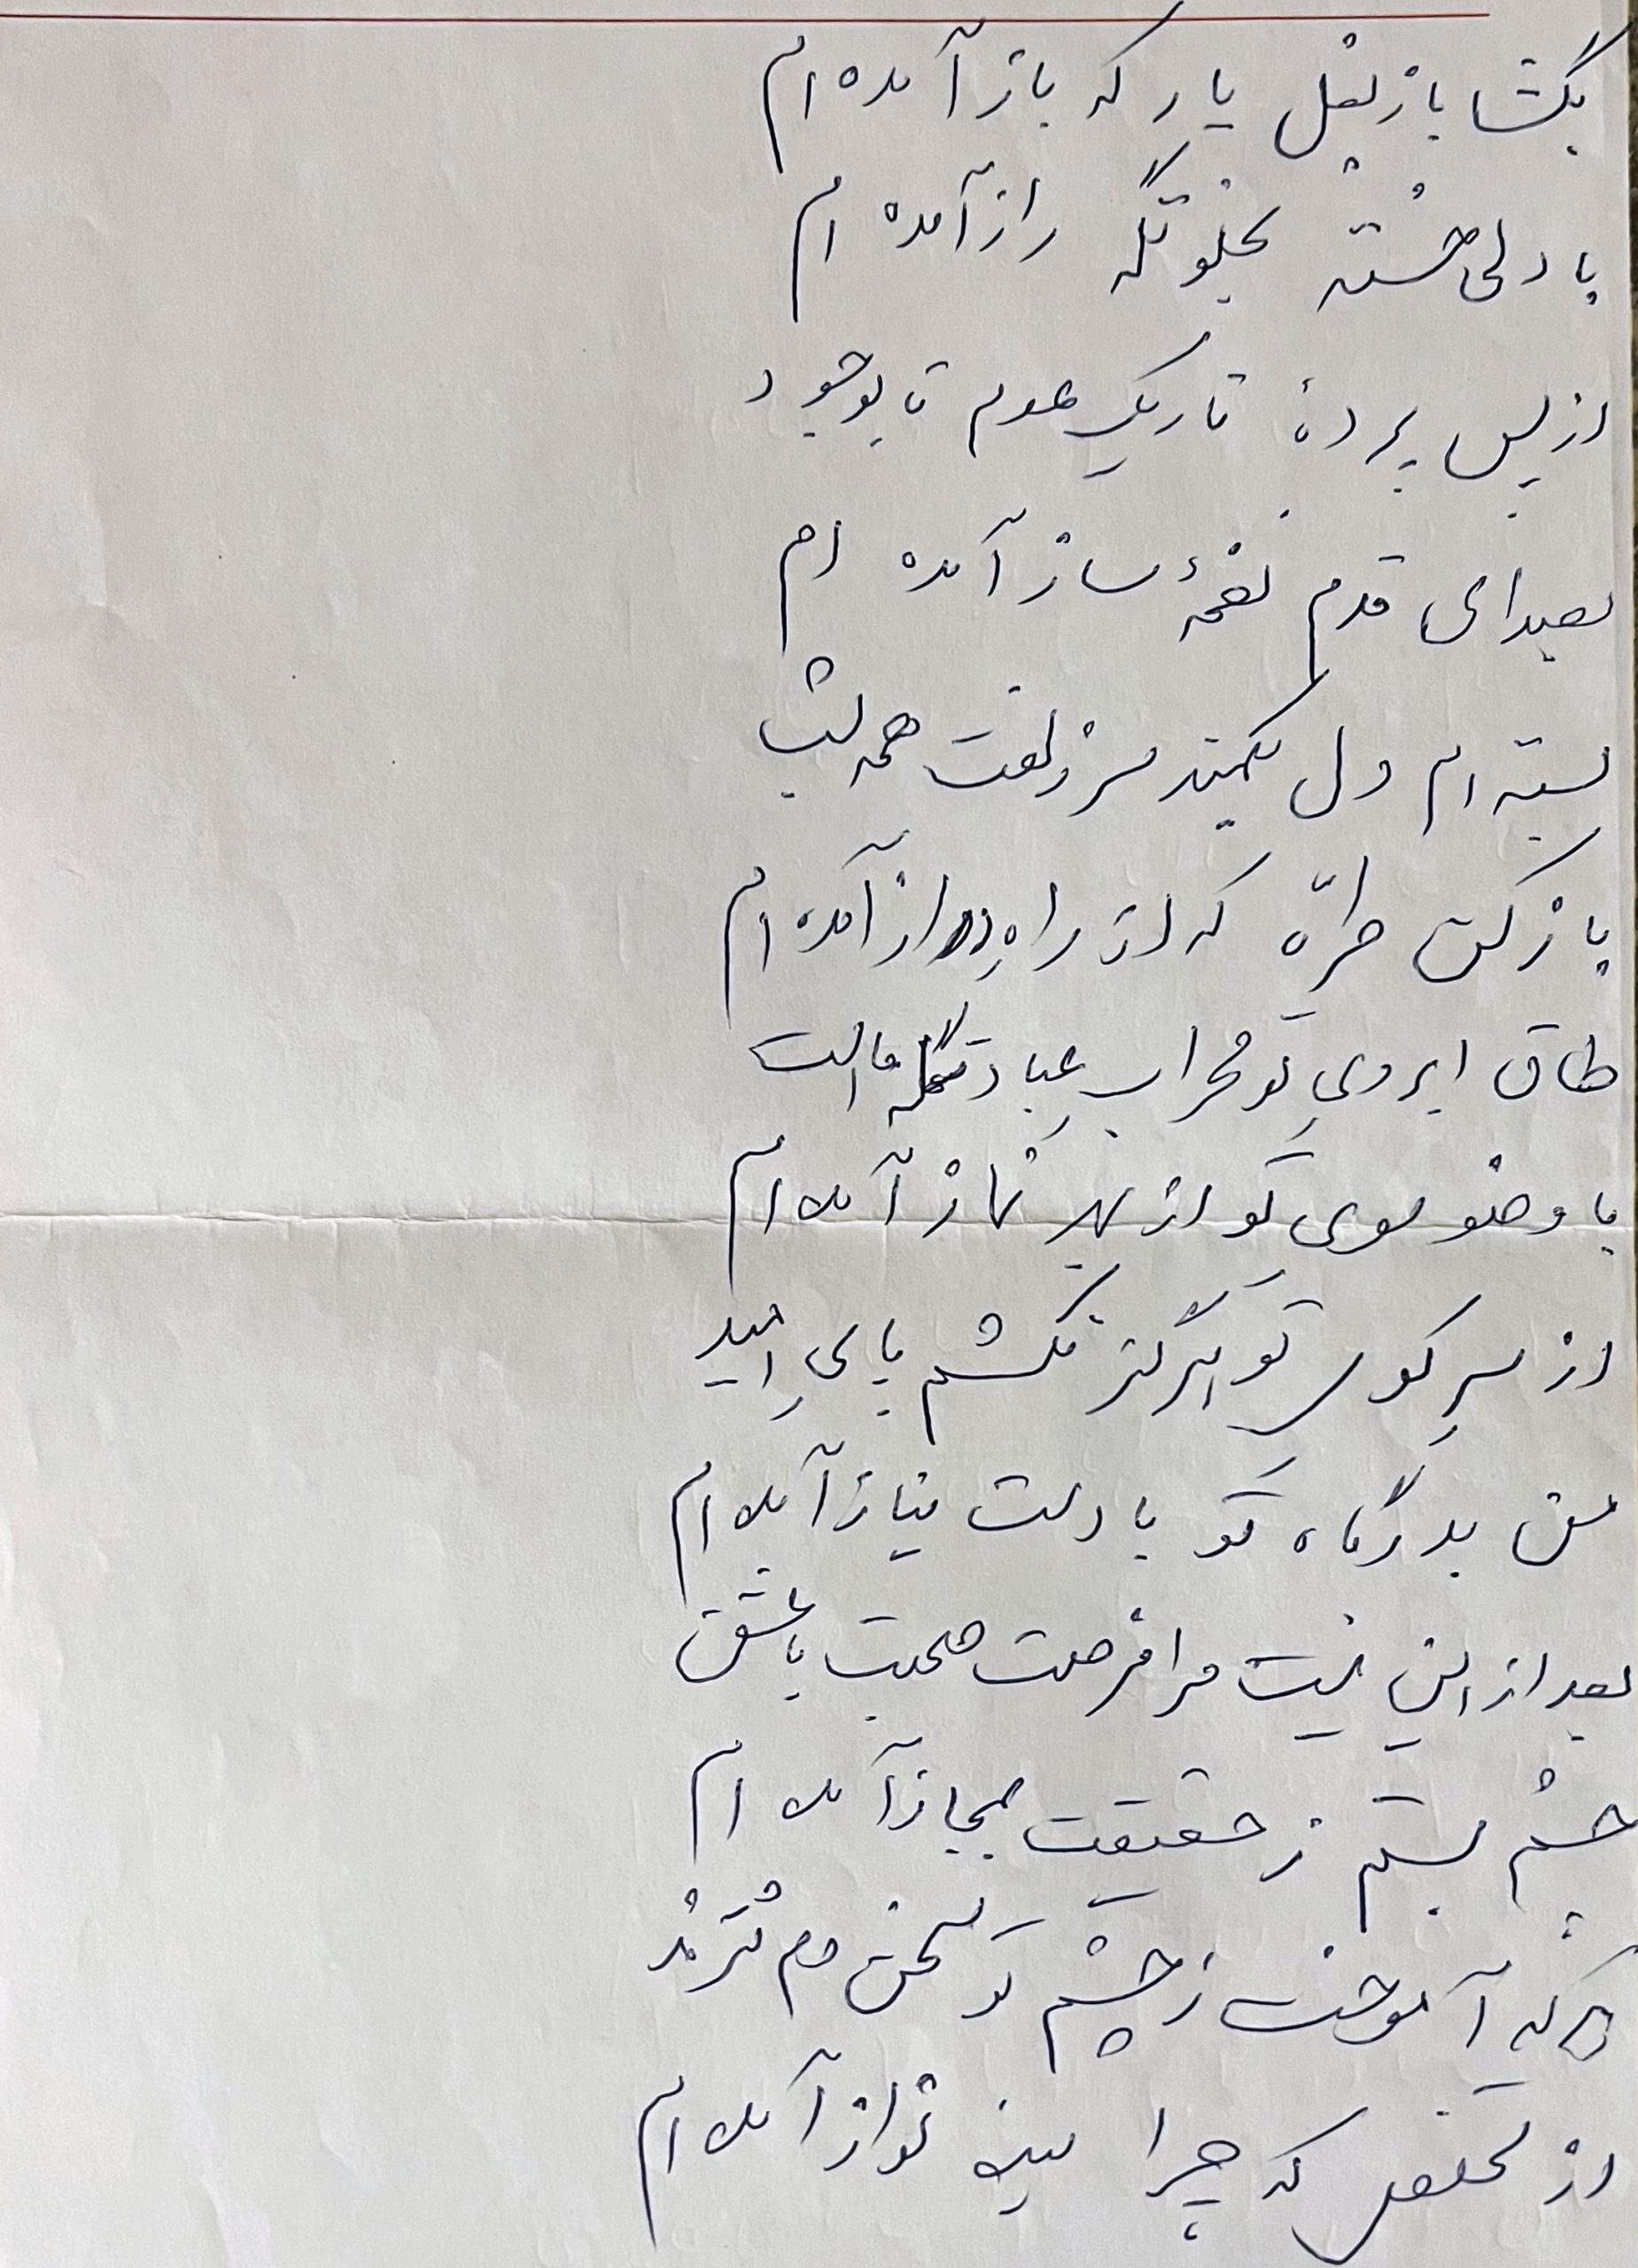 بگشا باز بغل یار که باز آمده ام
با دلی خسته بخلوتگه راز آمده ام
از پس پردۀ تاریک عدم تا بوجود
بصدای قدم نغمۀ ساز آمده ام
بسته ام دل بکمند سر زلفت همه شب
باز کن طرّه که از راهِ دراز آمده ام
طاق ابرویِ تو محرابِ عبادتگه ماست
با وضو سوی تو از بهرِ نماز آمده ام
از سرِ کوی تو هرگز نکشم پایِ امید
من بدرگاه تو با دست نیاز آمده ام
بعد از این نیست مرا فرصت صحبت با عشق
چشم بستم ز حقیقت بمجاز آمده ام
آموخت ز چشم تو سخن دم نزند
از که چرا نواز آمده ام